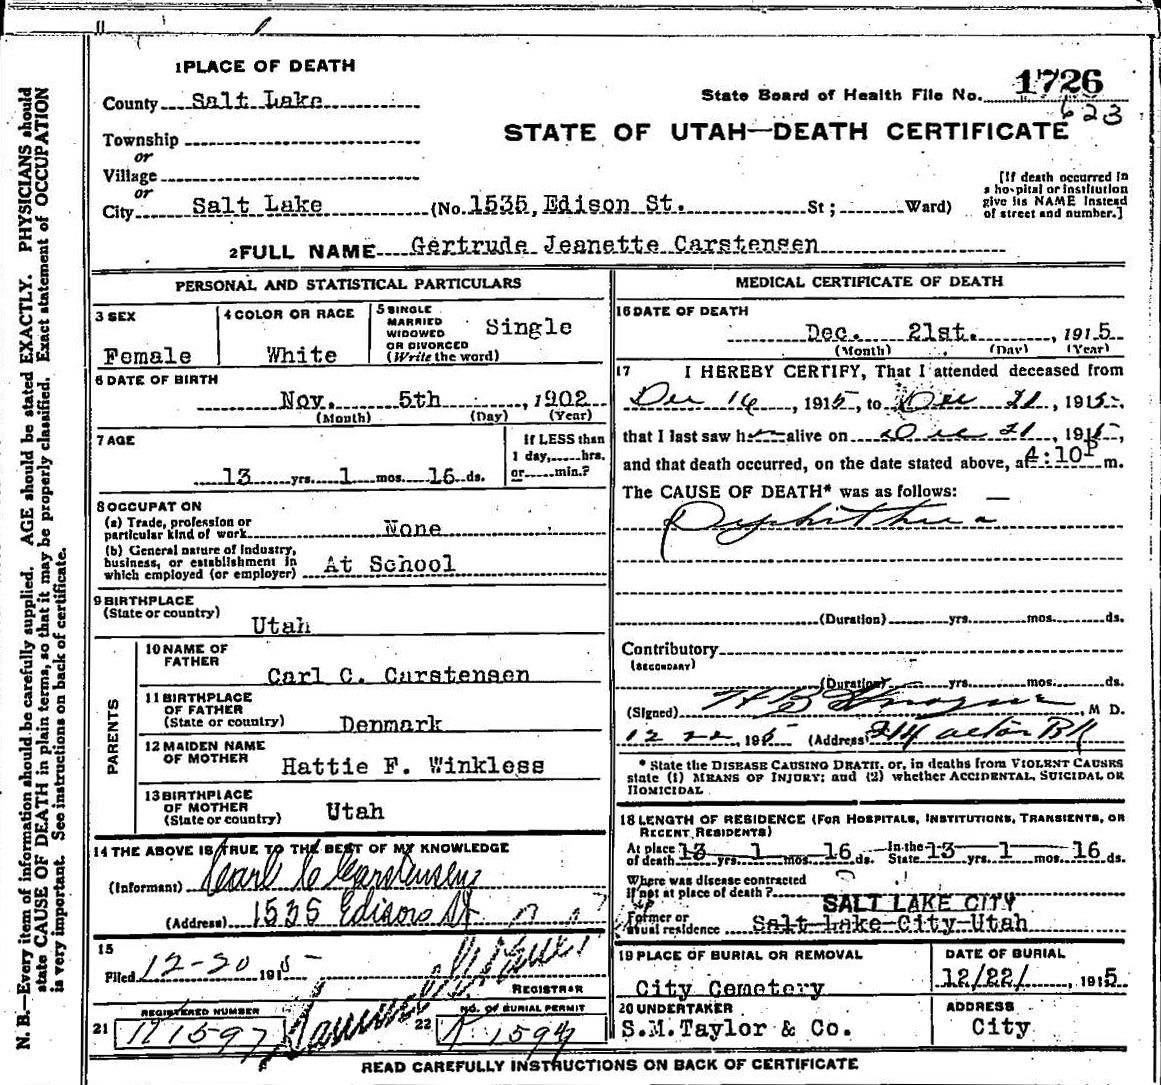 1 PLACE OF DEATH
County Salt Lake
State Board of Health File No. 1726
623
Township
STATE OF UTAH—DEATH CERTIFICATE
or
Village
or
City Salt Lake (No. 1535, Edison St. St; Ward)
[If death occurred in a hospital or institution give its NAME instead of street and number.]
2 FULL NAME Gertrude Jeanette Carstensen
PERSONAL AND STATISTICAL PARTICULARS
3 SEX
Female
4 COLOR OR RACE
White
5 SINGLE MARRIED WIDOWED OR DIVORCED (Write the word)
Single
6 DATE OF BIRTH
Nov. 5th, 1902
(Month) (Day) (Year)
7 AGE
13 yrs. 1 mos. 16 ds.
If LESS than
1 day, hrs.
or min.?
8 OCCUPATON
(a) Trade, profession or
particular kind of work None
(b) General nature of Industry,
business, or establishment in
which employed (or employer) At School
9 BIRTHPLACE
(State or country)
Utah
PARENTS
10 NAME OF FATHER
Carl C. Carstensen
11 BIRTHPLACE OF FATHER
(State or country) Denmark
12 MAIDEN NAME OF MOTHER
Hattie F. Winkless
13 BIRTHPLACE OF MOTHER
(State or country) Utah
14 THE ABOVE IS TRUE TO THE BEST OF MY KNOWLEDGE
(Informant) Carl C Carstensen
(Address) 1535 Edison St
15
Filed 12-20 1915
REGISTRAR
21 REGISTERED NUMBER
22 NO. OF BURIAL PERMIT
MEDICAL CERTIFICATE OF DEATH
16 DATE OF DEATH
Dec. 21st. , 1915
(Month) (Day) (Year)
17 I HEREBY CERTIFY, That I attended deceased from
Dec 14, 1915, to Dec 21, 1915,
that I last saw h alive on Dec 21, 1915,
and that death occurred, on the date stated above, at 4:10P m.
The CAUSE OF DEATH* was as follows:
(Duration) yrs. mos. ds.
Contributory
(SECONDARY)
(Duration) yrs. mos. ds.
(Signed) , M D.
12 22, 1915 (Address)
* State the DISEASE CAUSING DEATH, or, in deaths from VIOLENT CAUSES
state (1) MEANS OF INJURY; and (2) whether ACCIDENTAL, SUICIDAL OR
HOMICIDAL
18 LENGTH OF RESIDENCE (FOR HOSPITALS, INSTITUTIONS, TRANSIENTS, OR
RECENT RESIDENTS)
At place of death 13 yrs. 1 mos. 16 ds. In the State 13 yrs. 1 mos. 16 ds.
Where was disease contracted
if not at place of death?
SALT LAKE CITY
Former or
usual residence Salt Lake City Utah
19 PLACE OF BURIAL OR REMOVAL
City Cemetery
DATE OF BURIAL
12/22/, 1915
20 UNDERTAKER
S.M. Taylor & Co.
ADDRESS
City
READ CAREFULLY INSTRUCTIONS ON BACK OF CERTIFICATE
N. B.—Every item of information should be carefully supplied. AGE should be stated EXACTLY. PHYSICIANS should
state CAUSE OF DEATH in plain terms, so that it may be properly classified. Exact statement of OCCUPATION
is very important. See instructions on back of certificate.